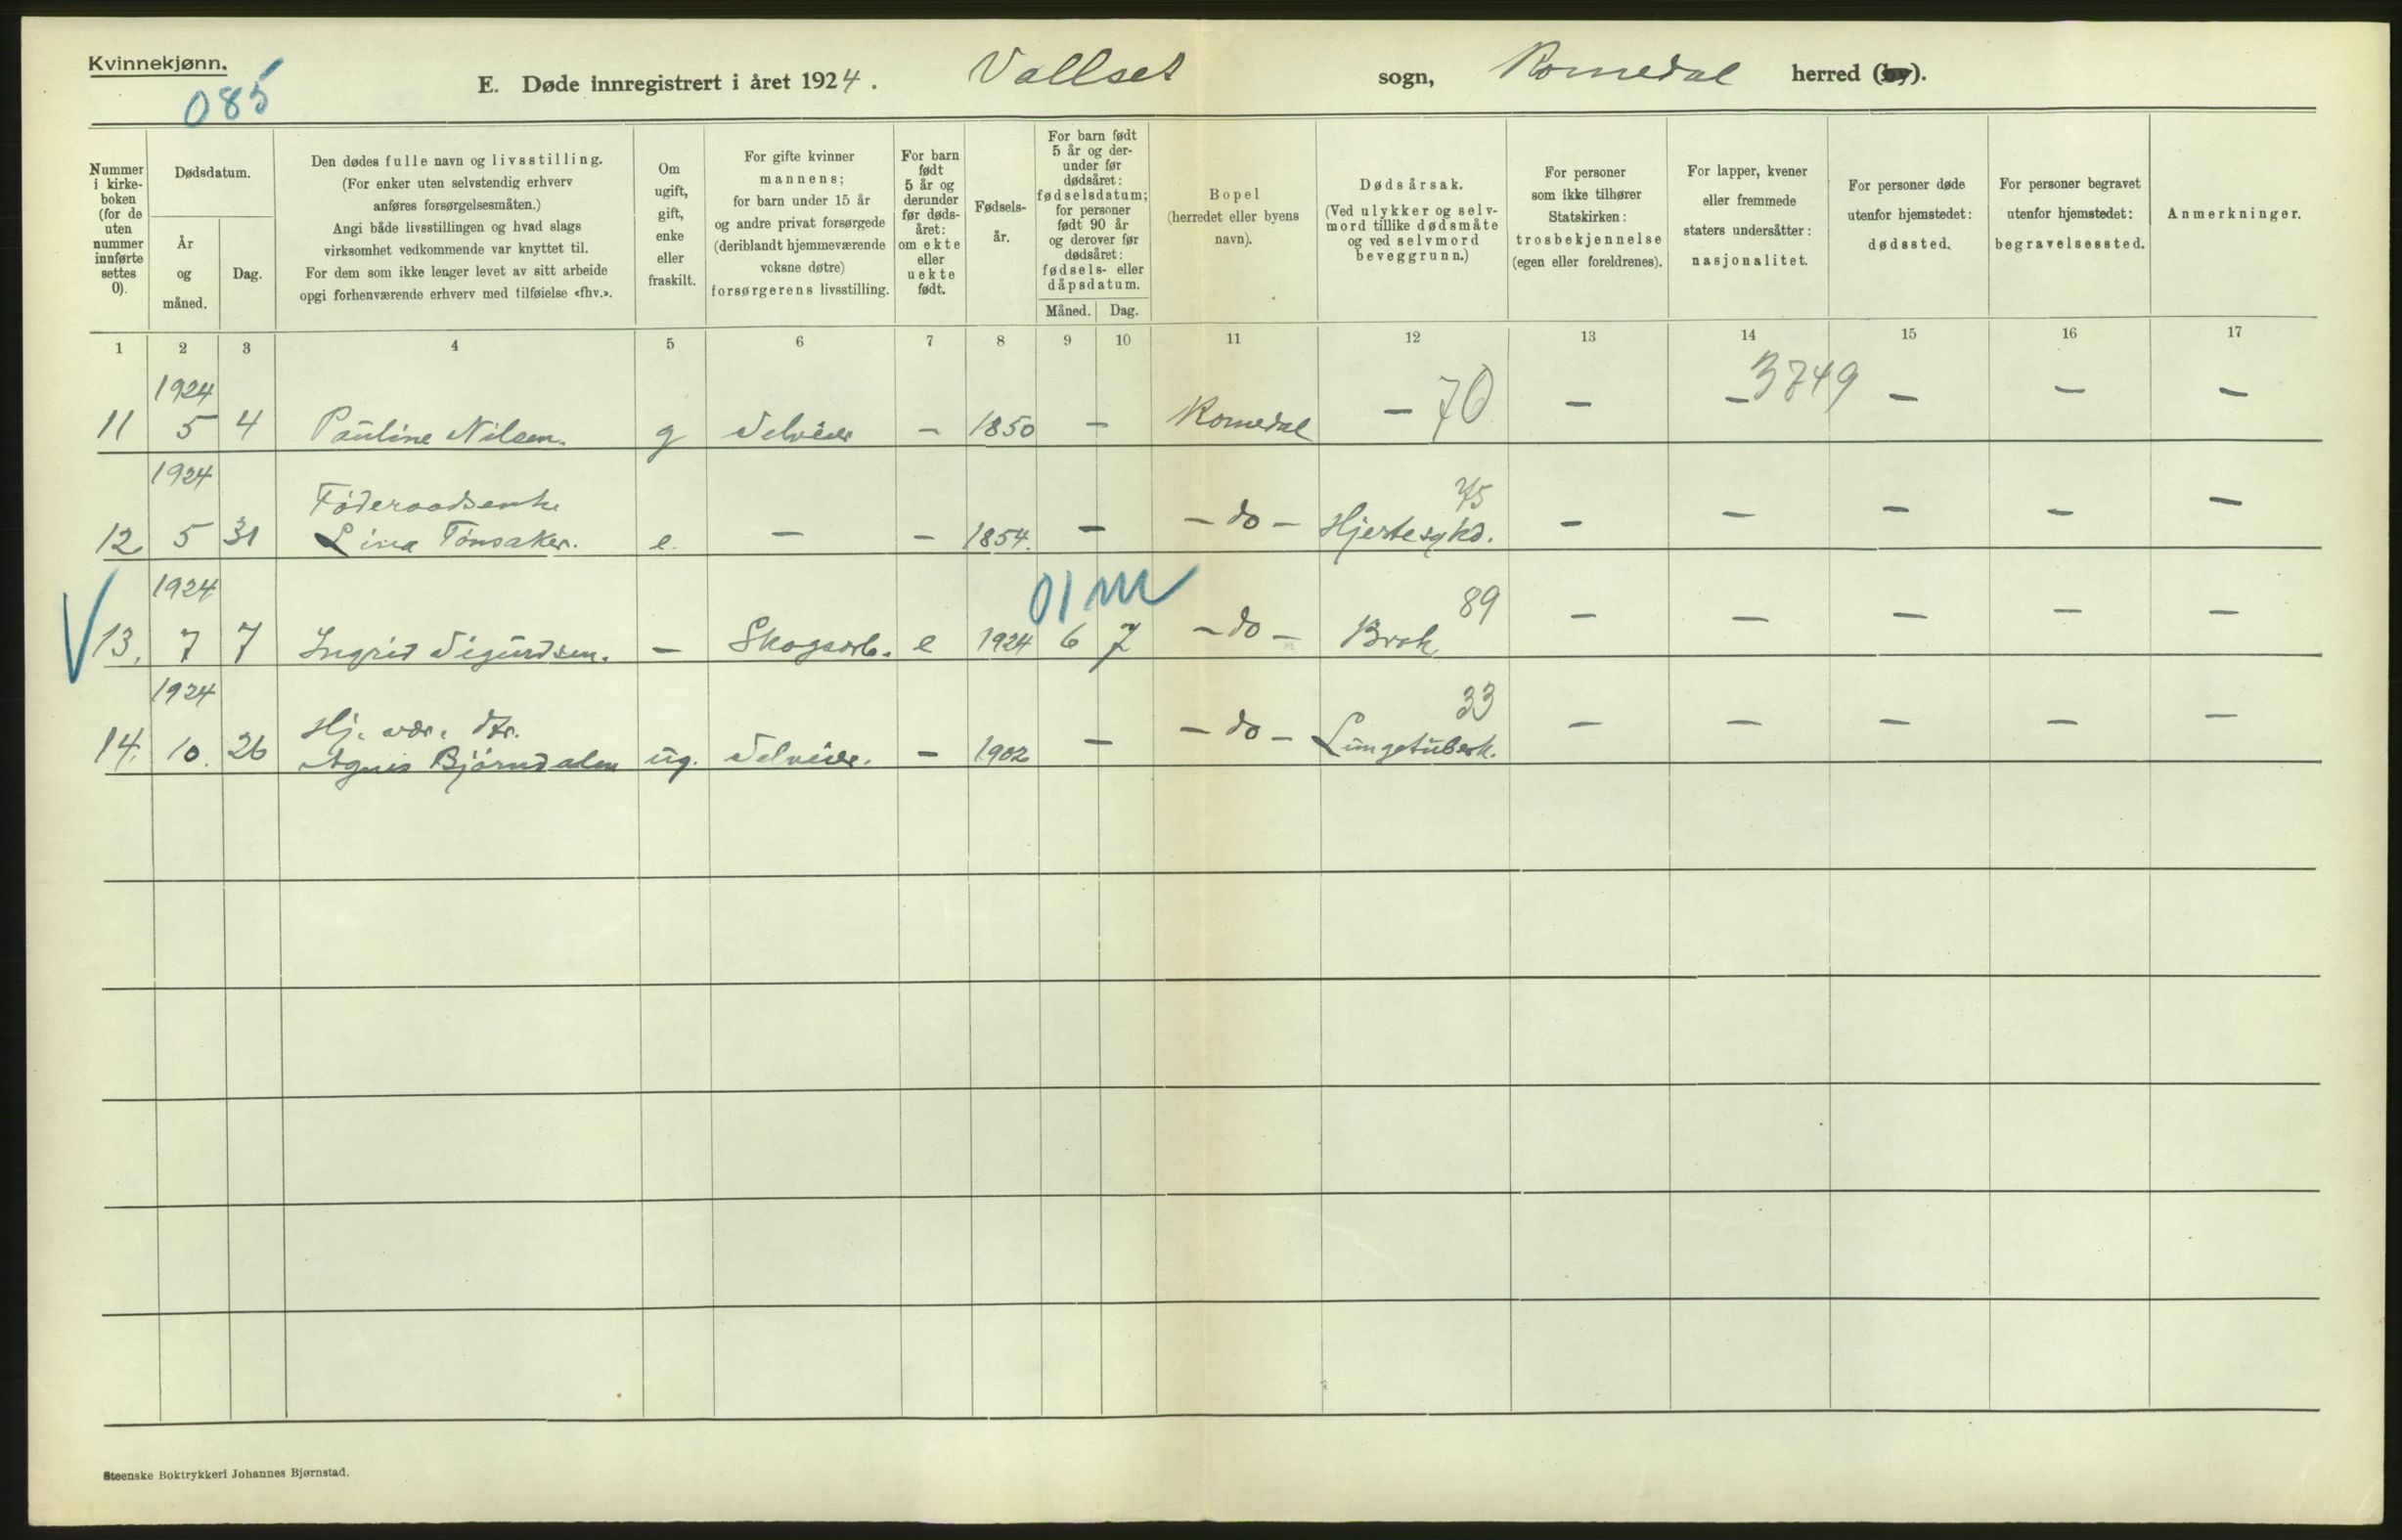 Kvinnekjønn.
085
E. Døde innregistrert i året 1924. Vallset sogn, Romedal herred (by).
Nummer i kirke-boken (for de uten nummer innførte settes 0).
Dødsdatum.
År og måned.
Dag.
Den dødes fulle navn og livsstilling.
(For enker uten selvstendig erhverv
anføres forsørgelsesmåten.)
Angi både livsstillingen og hvad slags
virksomhet vedkommende var knyttet til.
For dem som ikke lenger levet av sitt arbeide
opgi forhenværende erhverv med tilføielse «fhv.».
Om
ugift,
gift,
enke
eller
fraskilt.
For gifte kvinner
mannens;
for barn under 15 år
og andre privat forsørgede
(deriblandt hjemmeværende
voksne døtre)
forsørgerens livsstilling.
For barn
født
5 år og
derunder
før døds-
året:
om ekte
eller
uekte
født.
Fødsels-
år.
For barn født
5 år og der-
under før
dødsåret:
fødselsdatum;
for personer
født 90 år
og derover før
dødsåret:
fødsels- eller
dåpsdatum.
Måned. Dag.
Bopel
(herredet eller byens
navn).
Dødsårsak.
(Ved ulykker og selv-
mord tillike dødsmåte
og ved selvmord
beveggrunn.)
For personer
som ikke tilhører
Statskirken:
trosbekjennelse
(egen eller foreldrenes).
For lapper, kvener
eller fremmede
staters undersåtter:
nasjonalitet.
For personer døde
utenfor hjemstedet:
dødssted.
For personer begravet
utenfor hjemstedet:
begravelsessted.
Anmerkninger.
1 2 3 4 5 6 7 8 9 10 11 12 13 14 15 16 17
1924 3749
11 5 4 Pauline Nilsen. g Selveier - 1850 - Romedal - 70 - - - - -
1924 Føderaadsenke 75
12 5 31 Lina Tønsaker. e. - - 1854. - - do - Hjertesykd. - - - - -
1924 01 m 89
13. 7 7 Ingrid Sigurdsen. - Skogsarb. e 1924 6 7 - do - Brok - - - - -
1924 Hj. vær. dtr. 33
14. 10. 26 Agnes Bjørndalen ug. Selveier. - 1902 - - do - Lungetuberk. - - - - -
Steenske Boktrykkeri Johannes Bjørnstad.